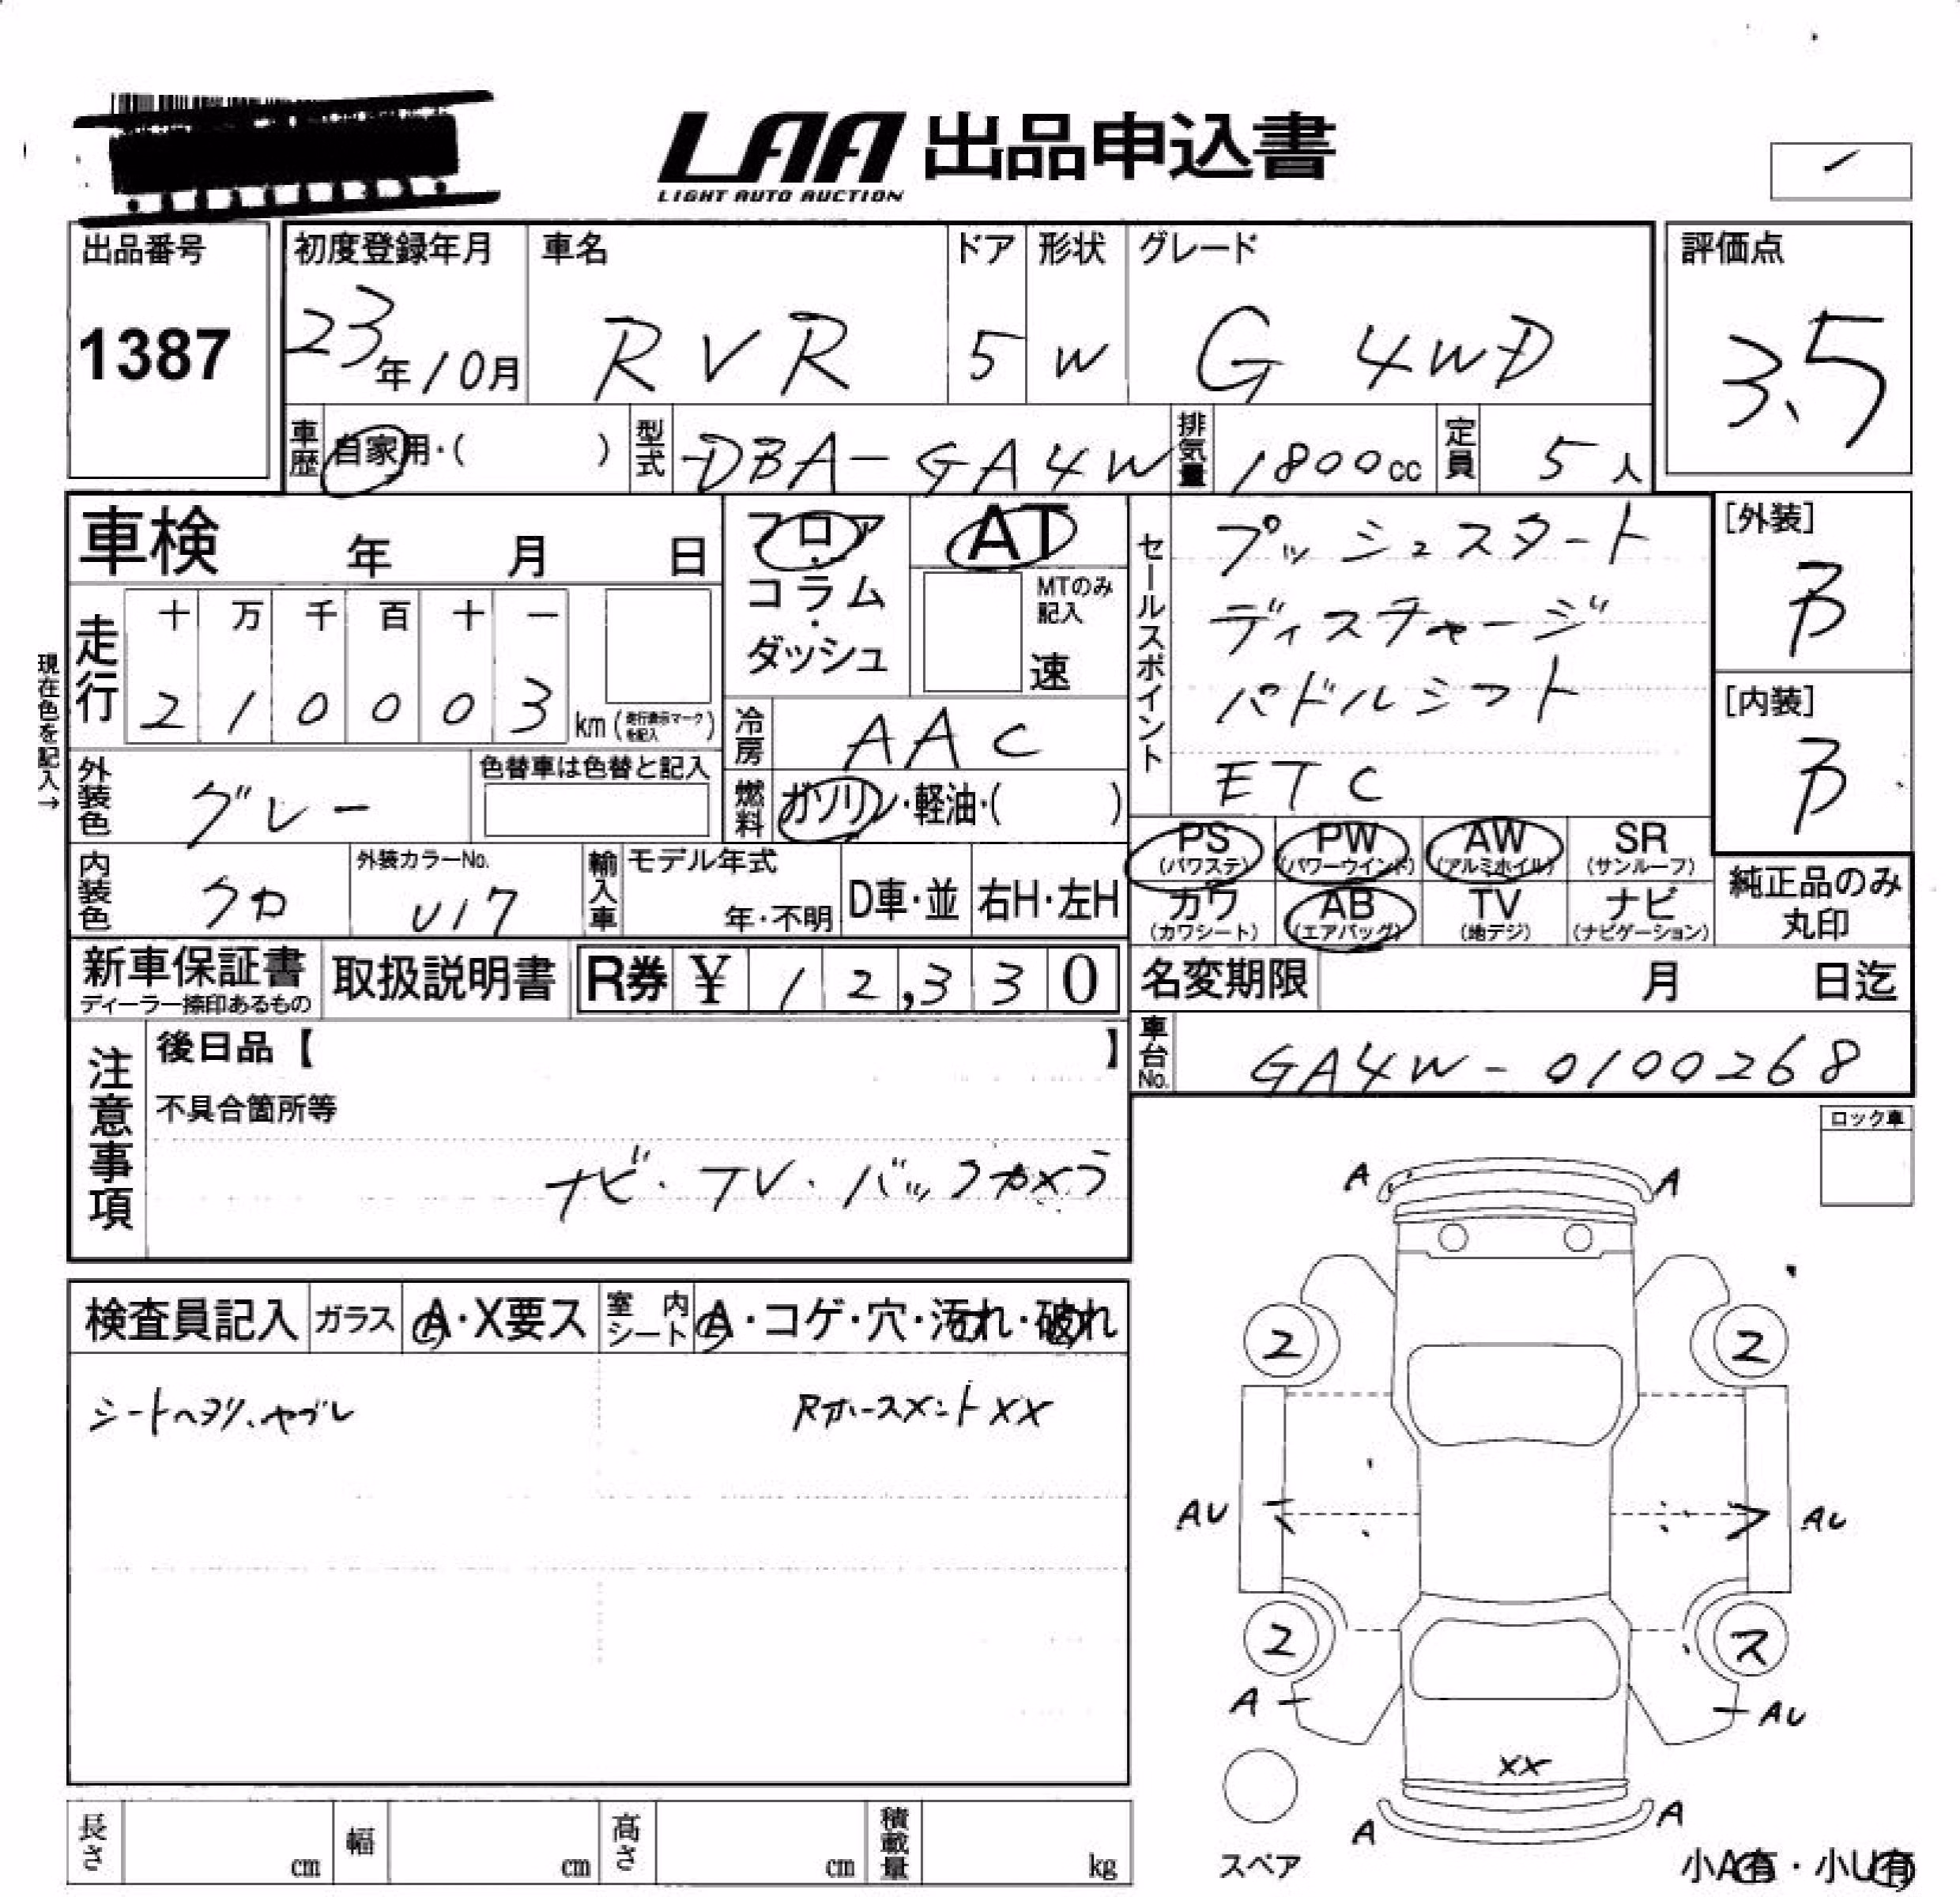 LAA 出品申込書
LIGHT AUTO AUCTION
出品番号
1387
初度登録年月
23年10月
車名
RVR
ドア
5
形状
W
グレード
G 4WD
評価点
3.5
車歴
自家用・( )
型式
DBA-GA4W
排気量
1800cc
定員
5人
車検 年 月 日
フロア・コラム・ダッシュ
AT
MTのみ記入
速
セールスポイント
プッシュスタート
ディスチャージ
パドルシフト
ETC
[外装]
B
[内装]
B
現在色を記入→
走行
十 万 千 百 十 一
2 1 0 0 0 3 km (走行表示マークを記入)
冷房
AAC
外装色
グレー
色替車は色替と記入
燃料
ガソリン・軽油・( )
PS (パワステ)
PW (パワーウインド)
AW (アルミホイル)
SR (サンルーフ)
カワ (カワシート)
AB (エアバッグ)
TV (地デジ)
ナビ (ナビゲーション)
純正品のみ丸印
内装色
クロ
外装カラーNo.
U17
輸入車
モデル年式
年・不明
D車・並
右H・左H
新車保証書
ディーラー捺印あるもの
取扱説明書
R券 ¥ 1 2,3 3 0
名変期限 月 日迄
車台No.
GA4W-0100268
注意事項
後日品【 】
不具合箇所等
ナビ・TV・バックカメラ
ロック車
検査員記入
ガラス
A・X要ス
室内シート
A・コゲ・穴・汚れ・破れ
シートヘタリ、ヤブレ
Rホースメント XX
A A
2 2
AU AU
2 2
A AU
XX
A A
スペア
小A有・小U有
長さ cm
幅 cm
高さ cm
積載量 kg